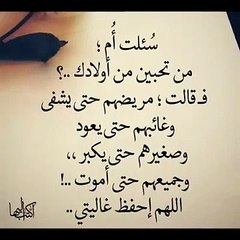 سُئلت أُم ؛
من تحبين من أولادك ..؟
فـ قالت ؛ مريضهم حتى يشفى
وغائبهم حتى يعود
وصغيرهم حتى يكبر ،،
وجميعهم حتى أموت ..!
اللهم إحفظ غاليتي ..